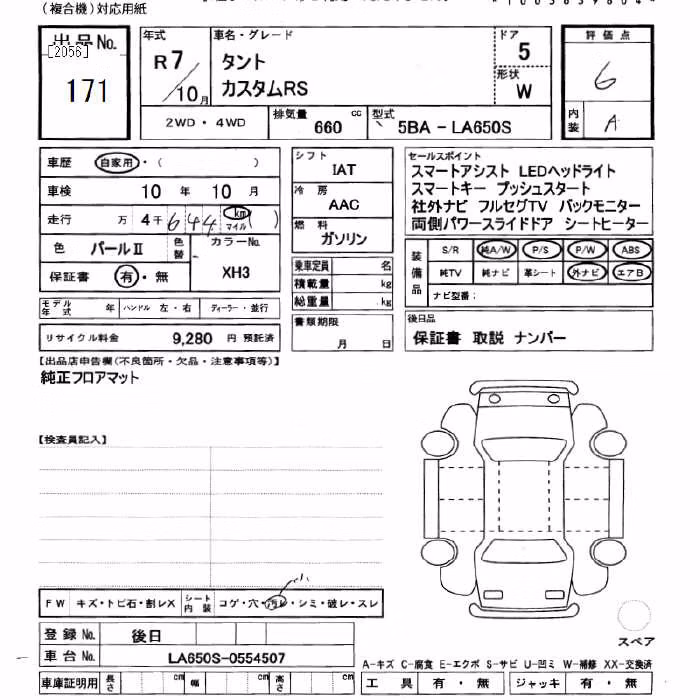 (複合機)対応用紙
出品No. [2056] 171
年式 R7/10月
車名・グレード タント カスタムRS
ドア 5
形状 W
評価点 6
内装 A
2WD・4WD
排気量 660 cc
型式 5BA - LA650S
車歴 自家用・( )
車検 10年 10月
走行 万 4千644 km マイル ( )
色 パールⅡ 色替
カラーNo. XH3
保証書 有・無
モデル年式 年 ハンドル 左・右 ディーラー・並行
リサイクル料金 9,280 円 預託済
シフト IAT
冷房 AAC
燃料 ガソリン
乗車定員 名
積載量 kg
総重量 kg
書類期限 月 日
セールスポイント
スマートアシスト LEDヘッドライト
スマートキー プッシュスタート
社外ナビ フルセグTV バックモニター
両側パワースライドドア シートヒーター
装備品 S/R 純A/W P/S P/W ABS
純TV 純ナビ 革シート 外ナビ エアB
ナビ型番:
後日品
保証書 取説 ナンバー
【出品店申告欄(不良箇所・欠品・注意事項等)】
純正フロアマット
【検査員記入】
FW キズ・トビ石・割レX シート内装 コゲ・穴・汚レ・シミ・破レ・スレ
登録No. 後日
車台No. LA650S-0554507
車庫証明用 長さ cm 幅 cm 高さ cm
スペア
A-キズ C-腐食 E-エクボ S-サビ U-凹ミ W-補修 XX-交換済
工具 有・無 ジャッキ 有・無